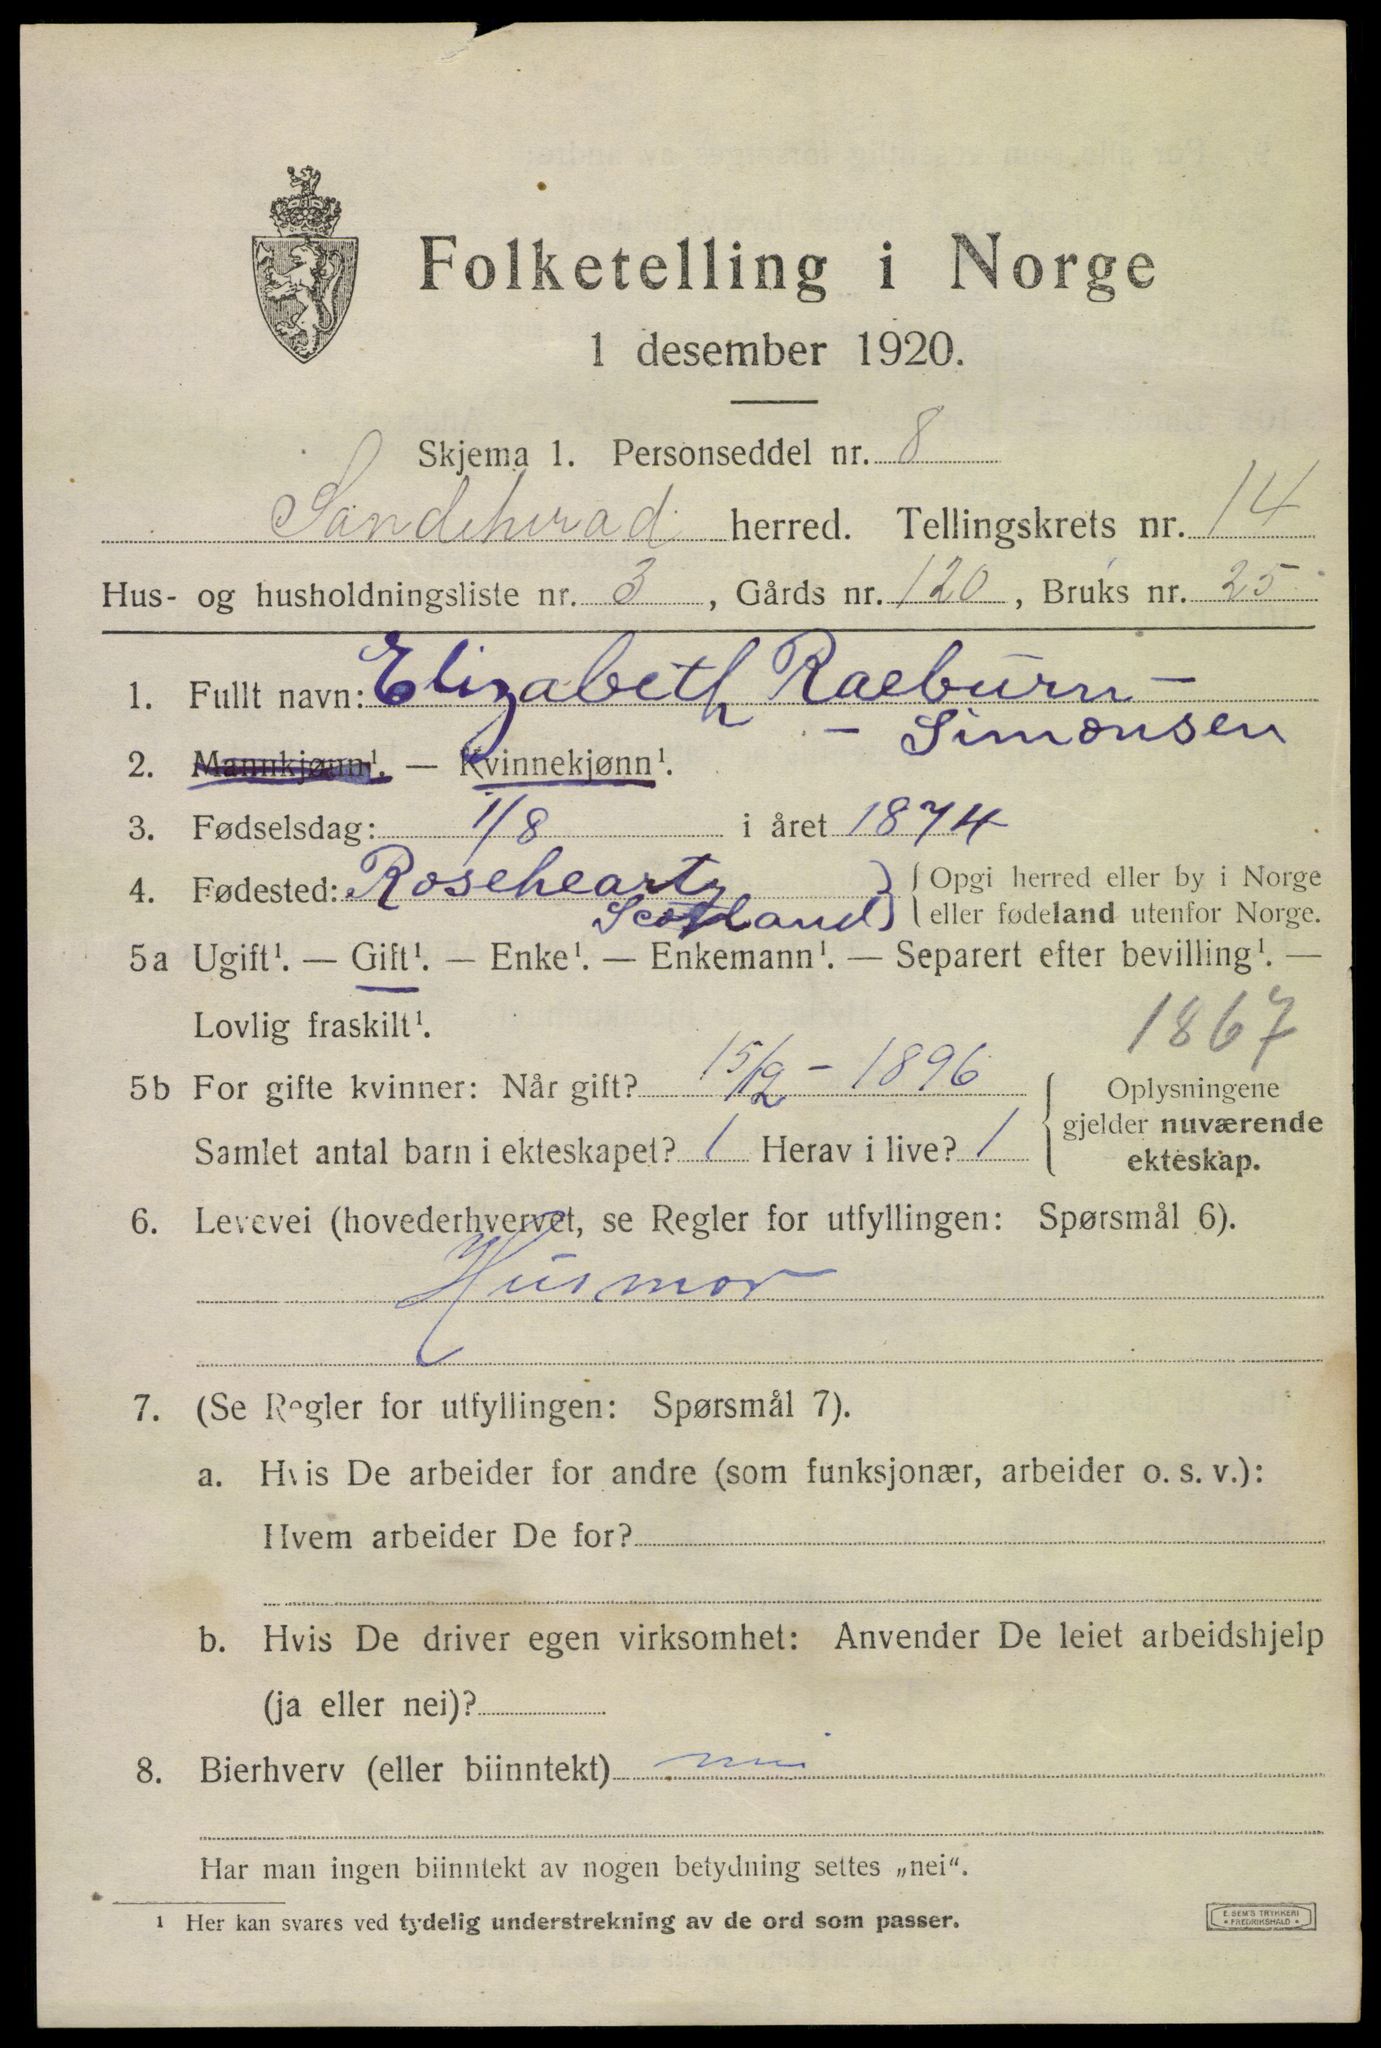 Folketelling i Norge
1 desember 1920.
Skjema 1. Personseddel nr. 8
Sandeherad herred. Tellingskrets nr. 14
Hus- og husholdningsliste nr. 3, Gårds nr. 120, Bruks nr. 25
1. Fullt navn: Elizabeth Raeburn-
- Simonsen
2. Mannkjønn¹. — Kvinnekjønn¹.
3. Fødselsdag: 1/8 i året 1874
4. Fødested: Rosehearty } { Opgi herred eller by i Norge
Scotland } { eller fødeland utenfor Norge.
5a Ugift¹. — Gift¹. — Enke¹. — Enkemann¹. — Separert efter bevilling¹. —
Lovlig fraskilt¹. 1867
5b For gifte kvinner: Når gift? 15/12 - 1896 { Oplysningene
gjelder nuværende
Samlet antal barn i ekteskapet? 1 Herav i live? 1 ekteskap.
6. Levevei (hovederhvervet, se Regler for utfyllingen: Spørsmål 6).
Husmor
7. (Se Regler for utfyllingen: Spørsmål 7).
a. Hvis De arbeider for andre (som funksjonær, arbeider o. s. v.):
Hvem arbeider De for?
b. Hvis De driver egen virksomhet: Anvender De leiet arbeidshjelp
(ja eller nei)?
8. Bierhverv (eller biinntekt) nei
Har man ingen biinntekt av nogen betydning settes „nei“.
¹ Her kan svares ved tydelig understrekning av de ord som passer.
E. SEM'S TRYKKERI
• FREDRIKSHALD •